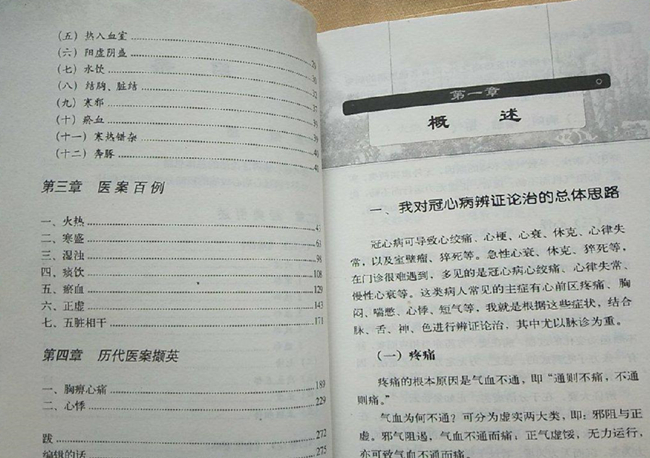 (五) 热入血室
(六) 阳虚阴盛
(七) 水饮
(八) 结胸、脏结
(九) 寒邪
(十) 瘀血
(十一) 寒热错杂
(十二) 奔豚
第三章 医案百例
一、火热
二、寒盛 61
三、湿浊 98
四、痰饮 108
五、瘀血 129
六、正虚 143
七、五脏相干 171
第四章 历代医案撷英
一、胸痹心痛 189
二、心悸 229
跋 272
编辑的话 275
第一章
概 述
一、我对冠心病辨证论治的总体思路
冠心病可导致心绞痛、心梗、心衰、休克、心律失
常，以及室壁瘤、猝死等。急性心衰、休克、猝死等，
在门诊很难遇到，多见的是冠心病心绞痛、心律失常、
慢性心衰等。这类病人常见的主症有心前区疼痛、胸
闷、喘憋、心悸、短气等，我就是根据这些症状，结合
脉、舌、神、色进行辨证论治，其中尤以脉诊为重。
(一) 疼痛
疼痛的根本原因是气血不通，即“通则不痛，不通
则痛。”
气血为何不通？可分为虚实两大类，即：邪阻与正
虚。邪气阻遏，气血不通而痛；正气虚馁，无力运行，
亦可致气血不通而痛。